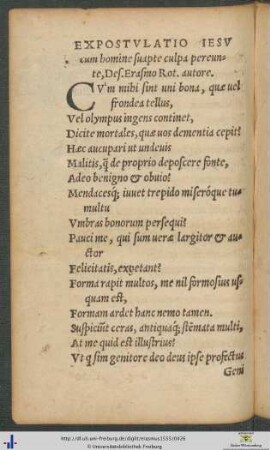 EXPOSTVLATIO IESV
cum homine suapte culpa pereun-
te, Des. Erasmo Rot. autore.
CV'm mihi sint uni bona, quæ uel
frondea tellus,
Vel olympus ingens continet,
Dicite mortales, quæ uos dementia cepit?
Hæc aucupari ut undeuis
Malitis, q̃ de proprio deposcere fonte,
Adeo benigno & obuio?
Mendacesq́; iuuet trepido miseróque tu-
multu
Vmbras bonorum persequi?
Pauci me, qui sum ueræ largitor & au-
ctor
Felicitatis, expetant?
Forma rapit multos, me nil formosius us-
quam est,
Formam ardet hanc nemo tamen.
Suspiciūt ceras, antiquaq́; stēmata multi,
At me quid est illustrius?
Vt q sim genitore deo deus ipse profectus
Geni
http://dl.ub.uni-freiburg.de/diglit/erasmus1555/0426
© Universitätsbibliothek Freiburg